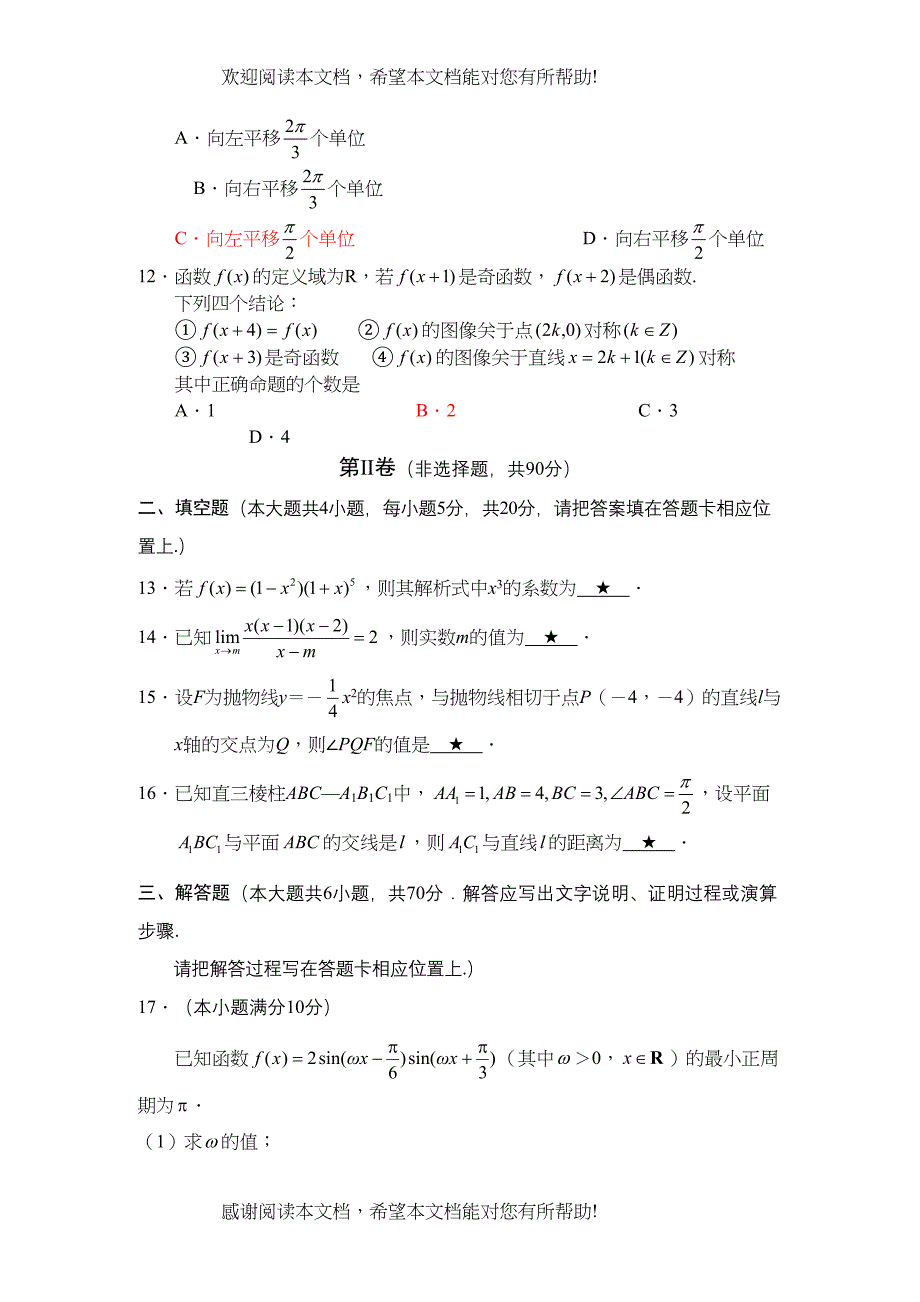 欢迎阅读本文档，希望本文档能对您有所帮助!
A．向左平移2π/3个单位
B．向右平移2π/3个单位
C．向左平移π/2个单位 D．向右平移π/2个单位
12．函数f(x)的定义域为R，若f(x+1)是奇函数，f(x+2)是偶函数.
下列四个结论：
①f(x+4)=f(x) ②f(x)的图像关于点(2k,0)对称(k∈Z)
③f(x+3)是奇函数 ④f(x)的图像关于直线x=2k+1(k∈Z)对称
其中正确命题的个数是
A．1 B．2 C．3
D．4
第II卷（非选择题，共90分）
二、填空题（本大题共4小题，每小题5分，共20分，请把答案填在答题卡相应位
置上.）
13．若f(x)=(1-x²)(1+x)⁵，则其解析式中x³的系数为__★__．
14．已知lim x→m x(x-1)(x-2)/(x-m)=2，则实数m的值为__★__．
15．设F为抛物线y＝－1/4x²的焦点，与抛物线相切于点P（－4，－4）的直线l与
x轴的交点为Q，则∠PQF的值是__★__．
16．已知直三棱柱ABC—A₁B₁C₁中，AA₁=1,AB=4,BC=3,∠ABC=π/2，设平面
A₁BC₁与平面ABC的交线是l，则A₁C₁与直线l的距离为__★__．
三、解答题（本大题共6小题，共70分．解答应写出文字说明、证明过程或演算
步骤.
请把解答过程写在答题卡相应位置上.）
17．（本小题满分10分）
已知函数f(x)=2sin(ωx-π/6)sin(ωx+π/3)（其中ω＞0，x∈R）的最小正周
期为π．
（1）求ω的值；
感谢阅读本文档，希望本文档能对您有所帮助!